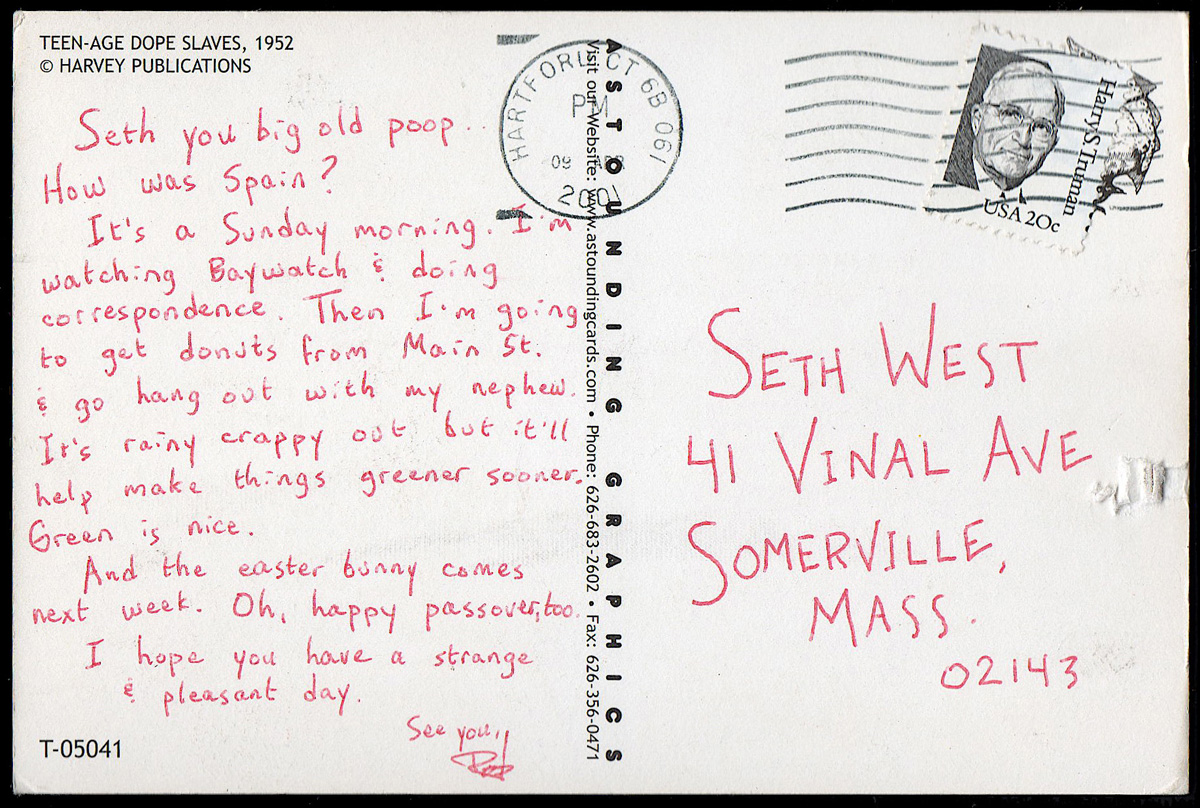 TEEN-AGE DOPE SLAVES, 1952
© HARVEY PUBLICATIONS
Seth you big old poop.
How was Spain?
It's a Sunday morning. I'm
watching Baywatch & doing
correspondence. Then I'm going
to get donuts from Main St.
& go hang out with my nephew.
It's rainy crappy out but it'll
help make things greener sooner.
Green is nice.
And the easter bunny comes
next week. Oh, happy passover, too.
I hope you have a strange
& pleasant day.
See you,
T-05041
ASTOUNDING GRAPHICS
Visit our Website: www.astoundingcards.com • Phone: 626-683-2602 • Fax: 626-356-0471
HARTFORD CT 6B 061
PM
09
2001
Harry S. Truman
USA 20c
SETH WEST
41 VINAL AVE
SOMERVILLE,
MASS.
02143